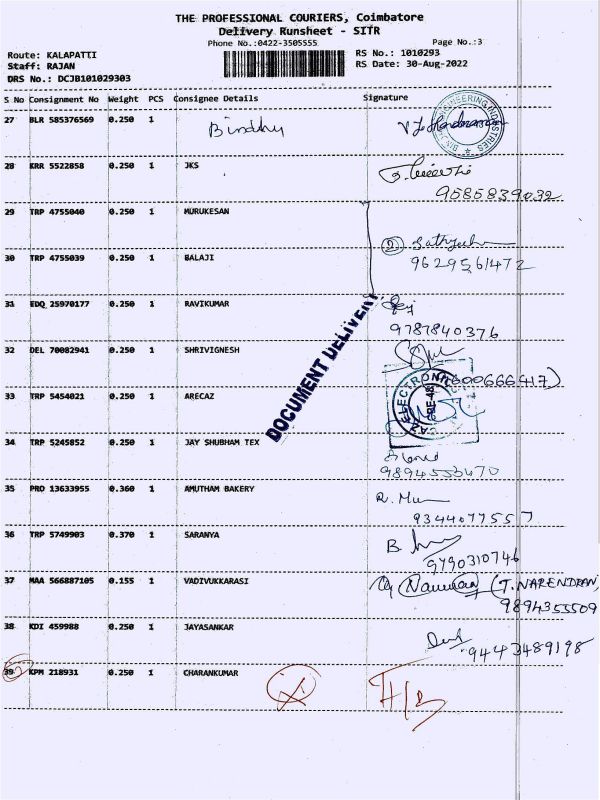 THE PROFESSIONAL COURIERS, Coimbatore
Delivery Runsheet - SITR
Phone No.:0422-3505555 Page No.:3
Route: KALAPATTI RS No.: 1010293
Staff: RAJAN RS Date: 30-Aug-2022
DRS No.: DCJB101029303
S No Consignment No Weight PCS Consignee Details Signature
27 BLR 585376569 0.250 1 Bindhu
ENGINEERING INDUSTRIES
28 KRR 5522858 0.250 1 JKS
9585839032
29 TRP 4755040 0.250 1 MURUKESAN
2
30 TRP 4755039 0.250 1 BALAJI 9629561472
31 EDQ 25970177 0.250 1 RAVIKUMAR
9787840376
DOCUMENT DELIVERY
32 DEL 70082941 0.250 1 SHRIVIGNESH
ELECTRONIC
33 TRP 5454021 0.250 1 ARECAZ
34 TRP 5245852 0.250 1 JAY SHUBHAM TEX
9894553470
35 PRO 13633955 0.360 1 AMUTHAM BAKERY
9344077557
36 TRP 5749903 0.370 1 SARANYA
9790310746
37 MAA 566887105 0.155 1 VADIVUKKARASI (T.NARENDRAN,
9894353509
38 KDI 459988 0.250 1 JAYASANKAR
9443489198
39 KPM 218931 0.250 1 CHARANKUMAR